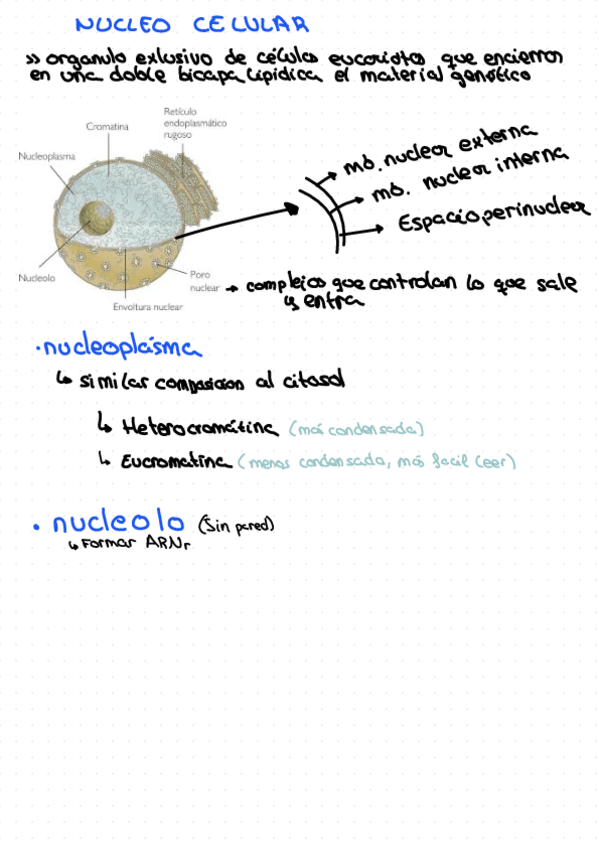 NUCLEO CELULAR
>> organulo exlusivo de células eucariotas que encierran
en una doble bicapa lipídica el material genético
Retículo
endoplasmático
rugoso
Cromatina
Nucleoplasma
mb. nuclear externa
mb. nuclear interna
Espacio perinuclear
Nucleolo
Poro
nuclear → complejos que controlan lo que sale
y entra
Envoltura nuclear
· nucleoplásma
↳ similar composicion al citosol
↳ Heterocromátina (más condensada)
↳ Eucromatina (menos condensada, más facil leer)
• nucleolo (Sin pared)
↳ Formar ARNr